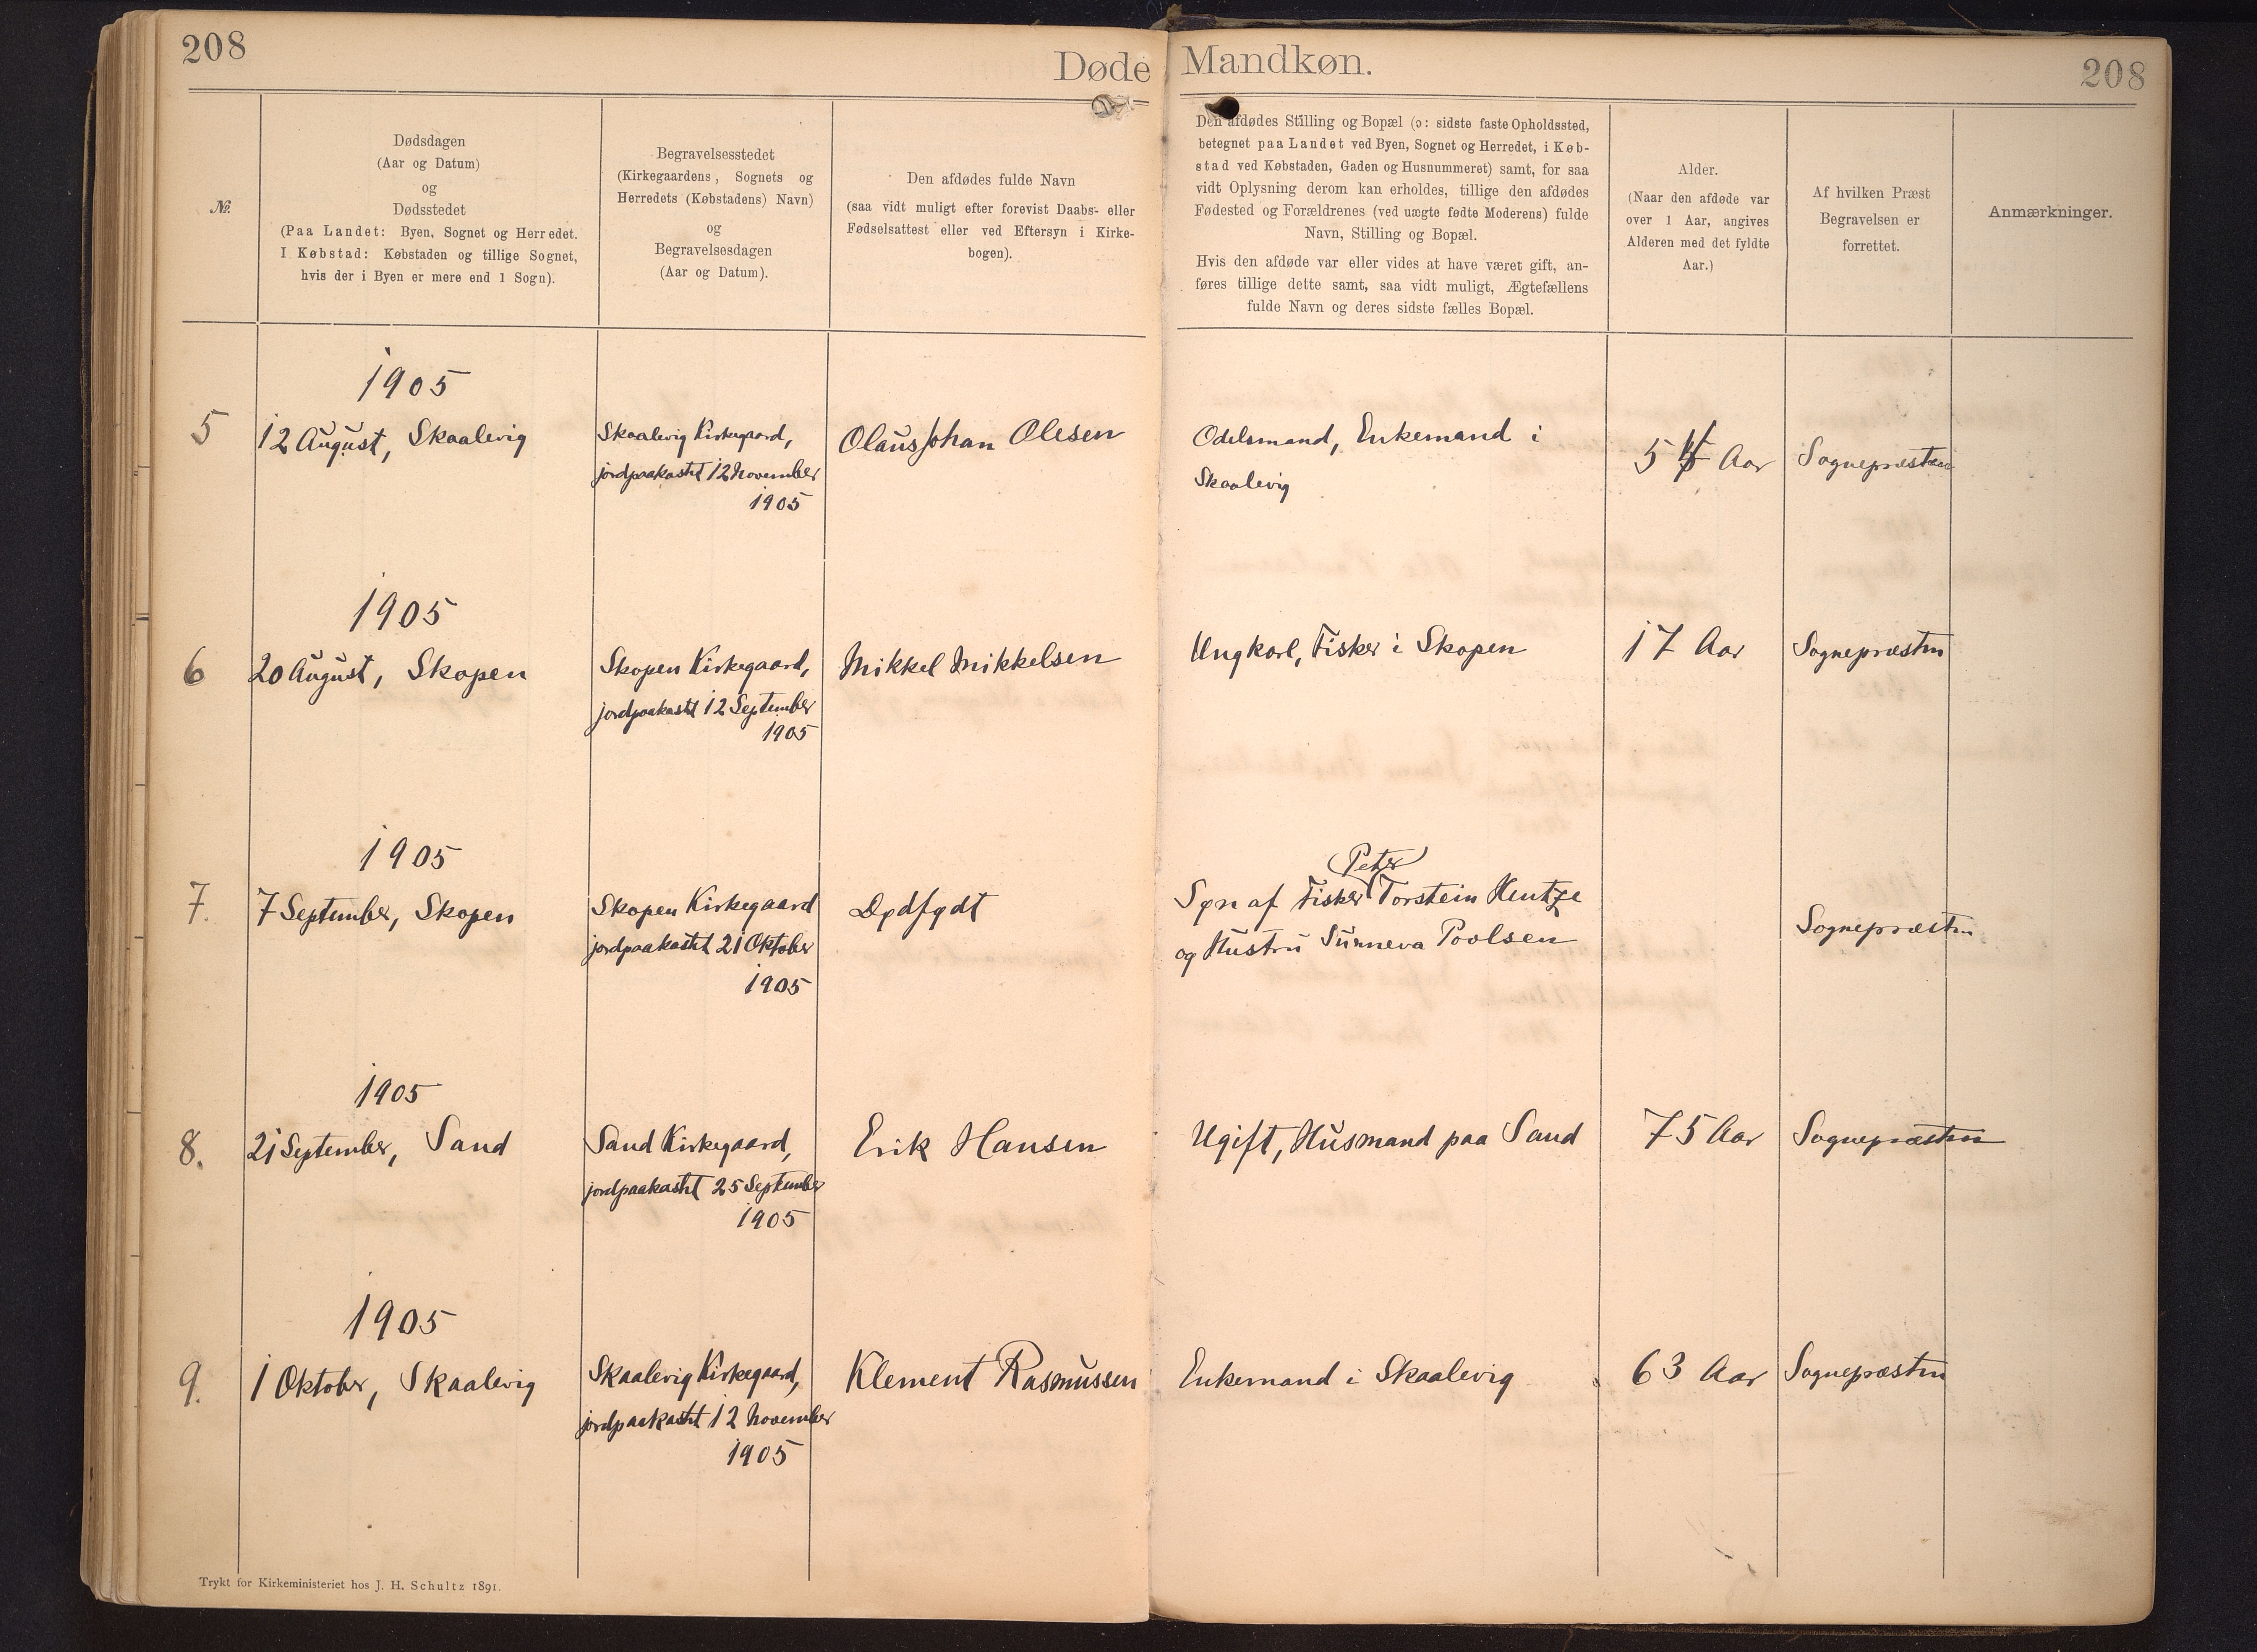 208
Døde Mandkøn.
208
№.
Dødsdagen
(Aar og Datum)
og
Dødsstedet
(Paa Landet: Byen, Sognet og Herredet.
I Købstad: Købstaden og tillige Sognet,
hvis der i Byen er mere end 1 Sogn).
Begravelsesstedet
(Kirkegaardens, Sognets og
Herredets (Købstadens) Navn)
og
Begravelsesdagen
(Aar og Datum).
Den afdødes fulde Navn
(saa vidt muligt efter forevist Daabs- eller
Fødselsattest eller ved Eftersyn i Kirke-
bogen).
Den afdødes Stilling og Bopæl (ɔ: sidste faste Opholdssted,
betegnet paa Landet ved Byen, Sognet og Herredet, i Køb-
stad ved Købstaden, Gaden og Husnummeret) samt, for saa
vidt Oplysning derom kan erholdes, tillige den afdødes
Fødested og Forældrenes (ved uægte fødte Moderens) fulde
Navn, Stilling og Bopæl.
Hvis den afdøde var eller vides at have været gift, an-
føres tillige dette samt, saa vidt muligt, Ægtefællens
fulde Navn og deres sidste fælles Bopæl.
Alder.
(Naar den afdøde var
over 1 Aar, angives
Alderen med det fyldte
Aar.)
Af hvilken Præst
Begravelsen er
forrettet.
Anmærkninger.
1905
5
12 August, Skaalevig
Skaalevig Kirkegaard,
jordpaakastet 12 November
1905
Olaus Johan Olesen
Odelsmand, Enkemand i
Skaalevig
5 Aar
Sognepræsten
1905
6
20 August, Skopen
Skopen Kirkegaard,
jordpaakastet 12 September
1905
Mikkel Mikkelsen
Ungkarl, Fisker i Skopen
17 Aar
Sognepræsten
1905
7.
7 September, Skopen
Skopen Kirkegaard
jordpaakastet 21 Oktober
1905
Dødfødt
Peter
Søn af Fisker Torstein Hentze
og Hustru Sunneva Poolsen
Sognepræsten
1905
8.
21 September, Sand
Sand Kirkegaard,
jordpaakastet 25 September
1905
Erik Hansen
Ugift, Husmand paa Sand
75 Aar
Sognepræsten
1905
9.
1 Oktober, Skaalevig
Skaalevig Kirkegaard,
jordpaakastet 12 November
1905
Klement Rasmussen
Enkemand i Skaalevig
63 Aar
Sognepræsten
Trykt for Kirkeministeriet hos J. H. Schultz 1891.